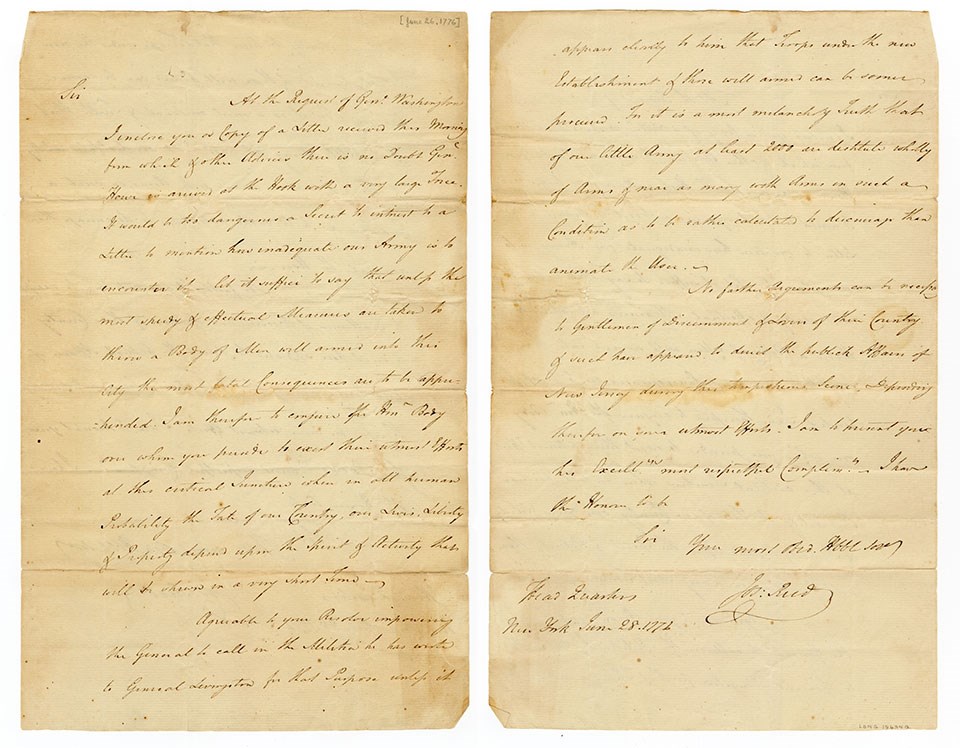 [June 26, 1776]
Sir
At the Request of Gen.l Washington
I inclose you a Copy of a Letter received this Morning
from which & other Advices there is no Doubt Gen.l
Howe is arrived at the Hook with a very large Force.
It would be too dangerous a Secret to intrust to a
Letter to mention how inadequate our Army is to
encounter it – let it suffice to say that unless the
most speedy & effectual Measures are taken to
throw a Body of Men well armed into this
City the most fatal Consequences are to be appre-
hended. I am therefore to conjure the Hon.ble Body
over whom you preside to exert their utmost Efforts
at this critical Juncture when in all human
Probability the Fate of our Country, our Lives, Liberty
& Property depend upon the Spirit & Activity that
will be shewn in a very short Time –
Agreeable to your Resolve impowering
the General to call in the Militia he has wrote
to General Livingston for that Purpose unless it
appears clearly to him that Troops under the new
Establishment & those well armed can be sooner
procured. For it is a most melancholy Truth that
of our little Army at least 2000 are destitute wholly
of Arms & near as many with Arms in such a
Condition as to be rather calculated to discourage than
animate the User. –
No farther Arguments can be necessy
to Gentlemen of Discernment & Lovers of their Country
& such have appeared to direct the publick Affairs of
New Jersey during this tempestuous Scene. Depending
therefore on your utmost Efforts. I am to present you
his Excell.cys most respectful Complim.ts – I have
the Honour to be
Sir Your most Obed. Hbble Serv
Jos: Reed
Head Quarters
New York June 28. 1776